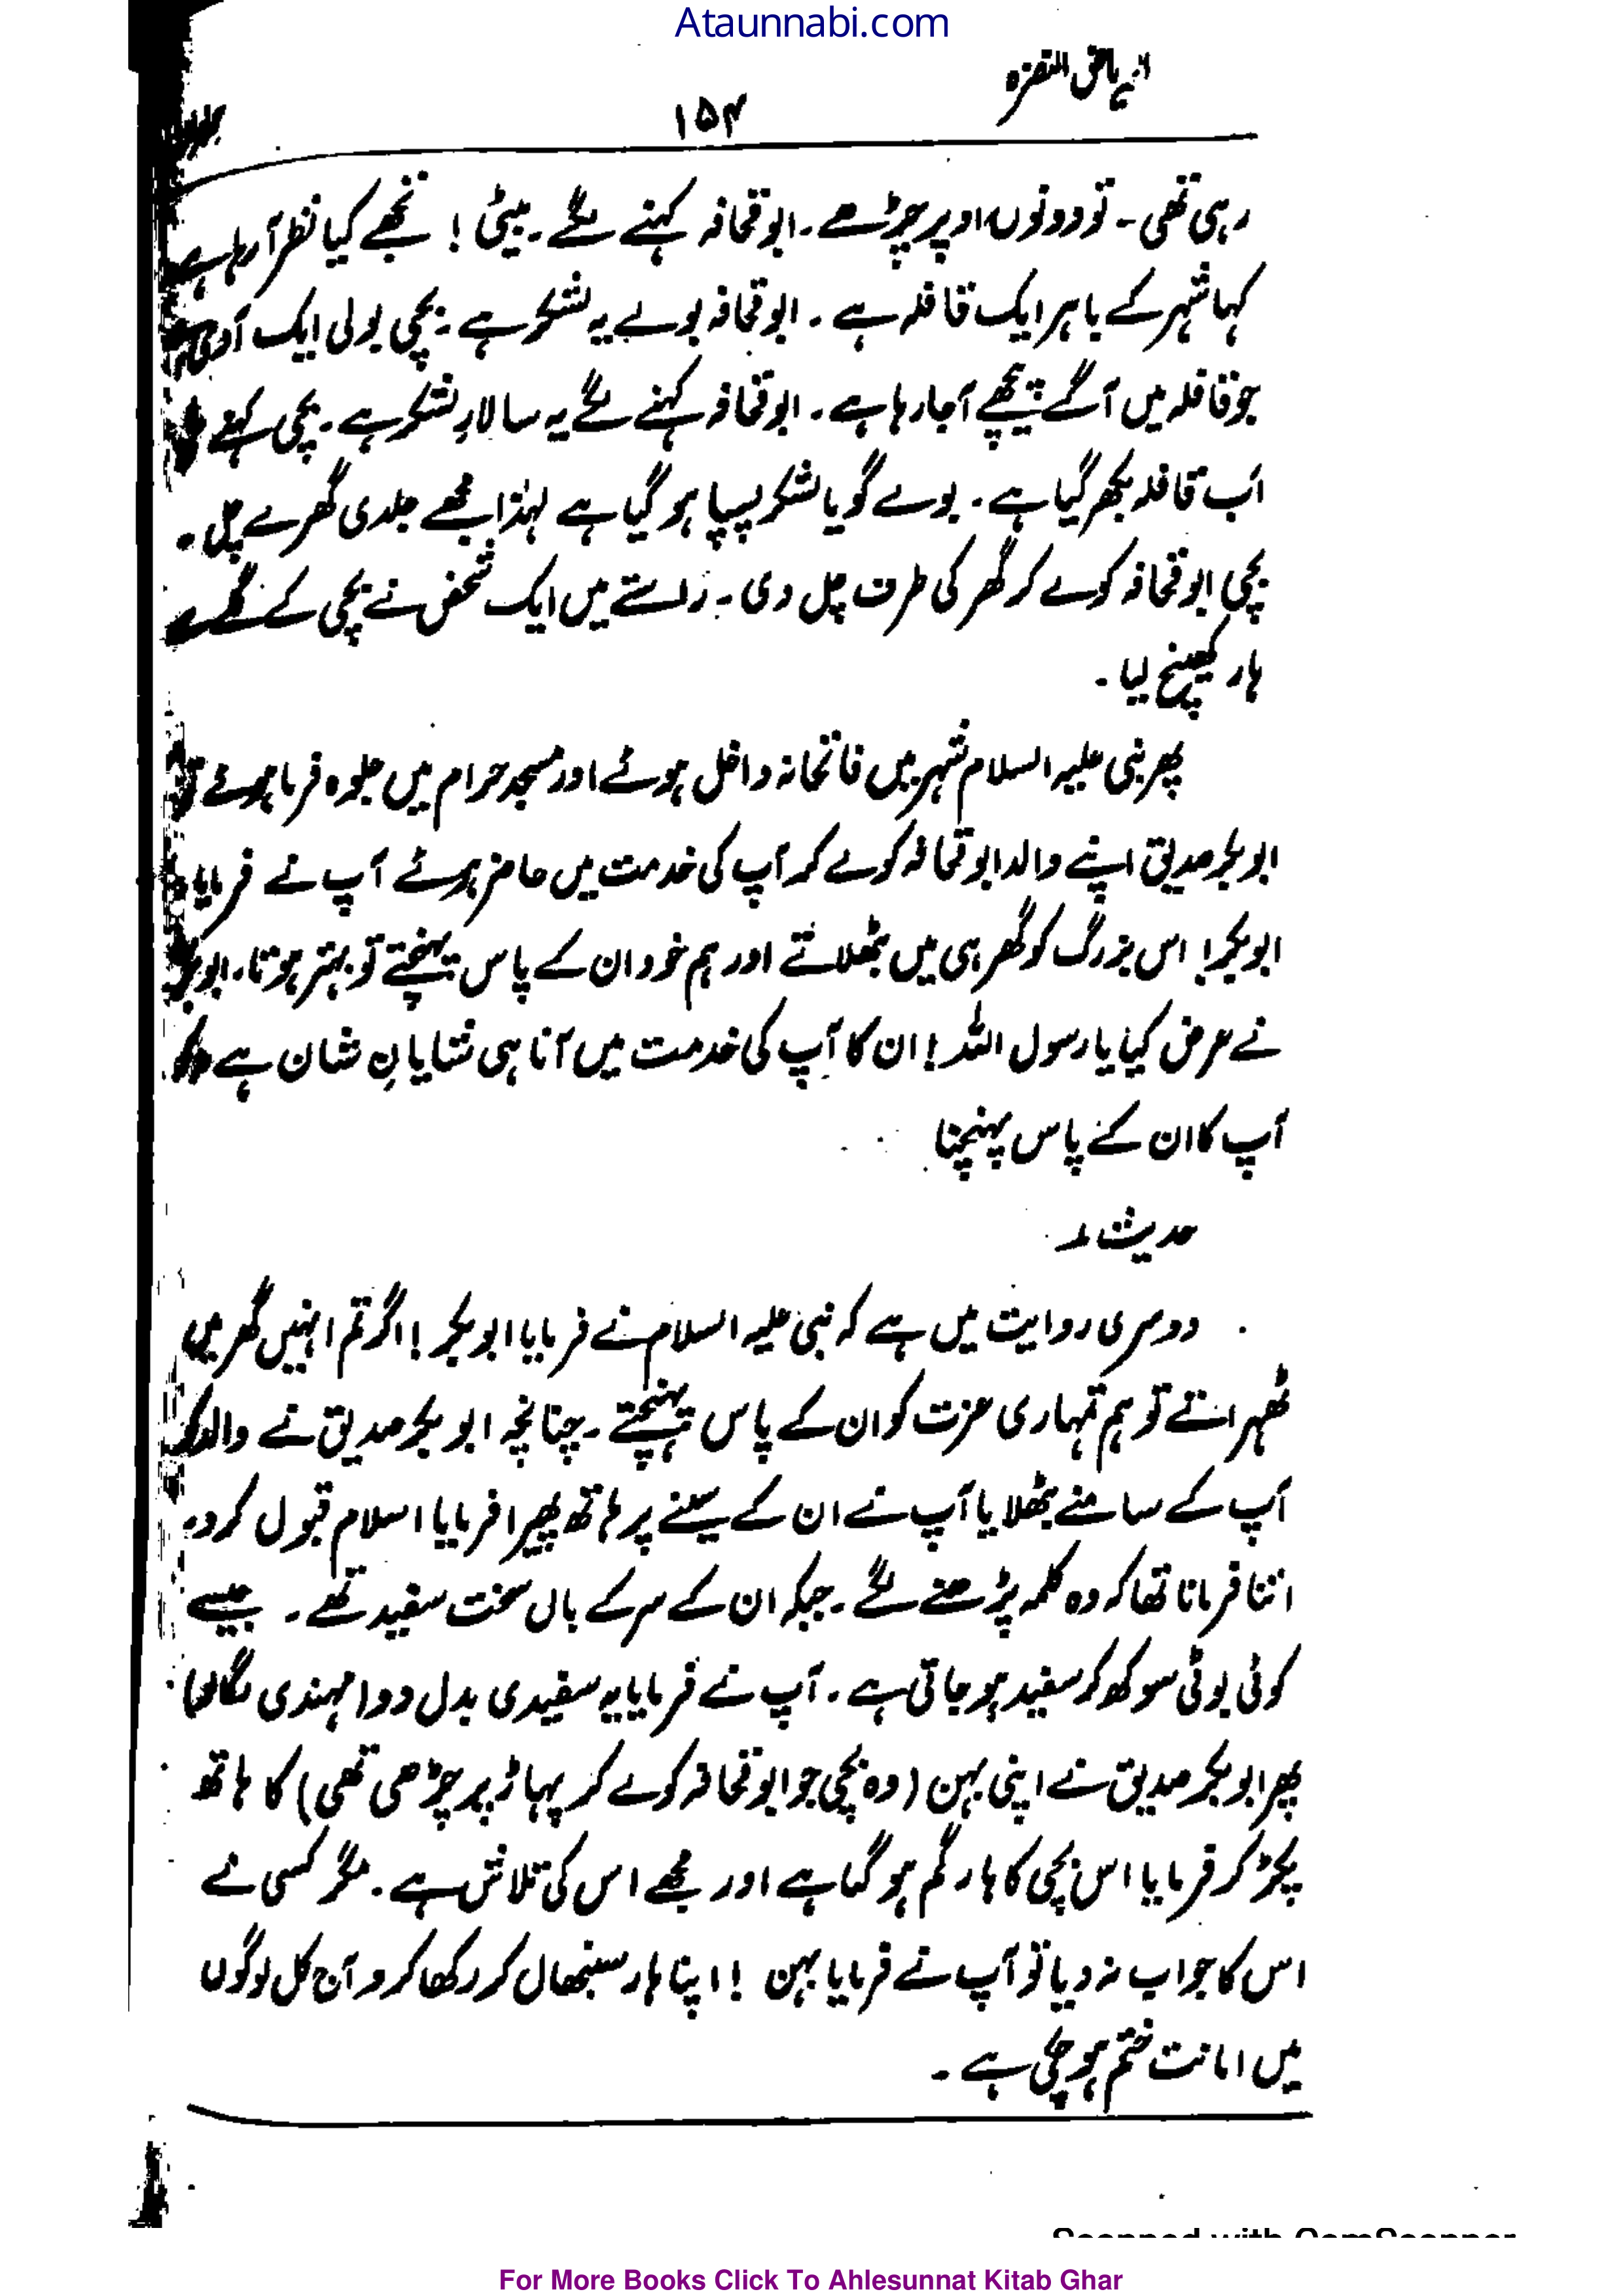 Ataunnabi.com
الریاض النضرہ
۱۵۴
رہی تھی ۔ تو دونوں اوپر چڑھے ۔ ابوقحافہ کہنے لگے ۔ بیٹی ! تجھے کیا نظر آ رہا ہے
کہا شہر کے باہر ایک قافلہ ہے ۔ ابوقحافہ بولے یہ لشکر ہے ۔ بچی بولی ایک آدمی
جو قافلہ میں آگے پیچھے آ جا رہا ہے ۔ ابوقحافہ کہنے لگے یہ سالارِ لشکر ہے ۔ بچی کہنے
اَب قافلہ بکھر گیا ہے ۔ بولے گویا لشکر پسپا ہو گیا ہے لہٰذا مجھے جلدی گھر لے چل ۔
بچی ابوقحافہ کو لے کر گھر کی طرف چل دی ۔ راستے میں ایک شخص نے بچی کے گلے سے
ہار کھینچ لیا ۔
پھر نبی علیہ السلام شہر میں فاتحانہ داخل ہوئے اور مسجد حرام میں جلوہ فرما ہوئے تو
ابوبکر صدیق اپنے والد ابوقحافہ کو لے کر آپ کی خدمت میں حاضر ہوئے آپ نے فرمایا
ابوبکر! اس بزرگ کو گھر ہی میں بٹھلاتے اور ہم خود ان کے پاس پہنچتے تو بہتر ہوتا ۔ ابوبکر
نے عرض کیا یا رسول اللہ ! ان کا آپ کی خدمت میں آنا ہی شایانِ شان ہے
آپ کا ان کے پاس پہنچنا
حدیث
دوسری روایت میں ہے کہ نبی علیہ السلام نے فرمایا ابوبکر ! اگر تم انہیں گھر میں
ٹھہراتے تو ہم تمہاری عزت کو ان کے پاس پہنچتے ۔ چنانچہ ابوبکر صدیق نے والد کو
آپ کے سامنے بٹھلایا آپ نے ان کے سینے پر ہاتھ پھیرا فرمایا اسلام قبول کرو ۔
اتنا فرمانا تھا کہ وہ کلمہ پڑھنے لگے ۔ جبکہ ان کے سر کے بال سخت سفید تھے ۔ جیسے
کوئی بوٹی سوکھ کر سفید ہو جاتی ہے ۔ آپ نے فرمایا یہ سفیدی بدل دو ا مہندی لگا لو)
پھر ابوبکر صدیق نے اپنی بہن (وہ بچی جو ابوقحافہ کو لے کر پہاڑ پر چڑھی تھی) کا ہاتھ
پکڑ کر فرمایا اس بچی کا ہار گم ہو گیا ہے اور مجھے اس کی تلاش ہے ۔ مگر کسی نے
اس کا جواب نہ دیا تو آپ نے فرمایا بہن ! اپنا ہار سنبھال کر رکھا کرو آج کل لوگوں
میں امانت ختم ہو چکی ہے ۔
Scanned with CamScanner
For More Books Click To Ahlesunnat Kitab Ghar